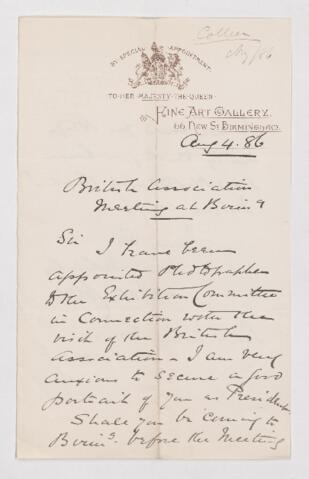 Collier
Aug/86
BY SPECIAL APPOINTMENT
TO HER MAJESTY THE QUEEN
FINE ART GALLERY.
66 NEW ST BIRMINGHAM.
Aug 4. 86
British Association
Meeting at Birmg
Sir
I have been
appointed Photographer
to the Exhibition Committee
in connection with the
visit of the British
Association - I am very
anxious to secure a good
portrait of you as President
Shall you be coming to
Birmg. before the Meeting